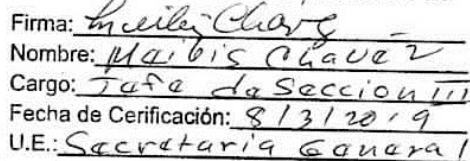 Firma: Maibis Chavez
Nombre: Maibis Chavez
Cargo: Jefe de Seccion III
Fecha de Cerificación: 8/3/2019
U.E.: Secretaria General